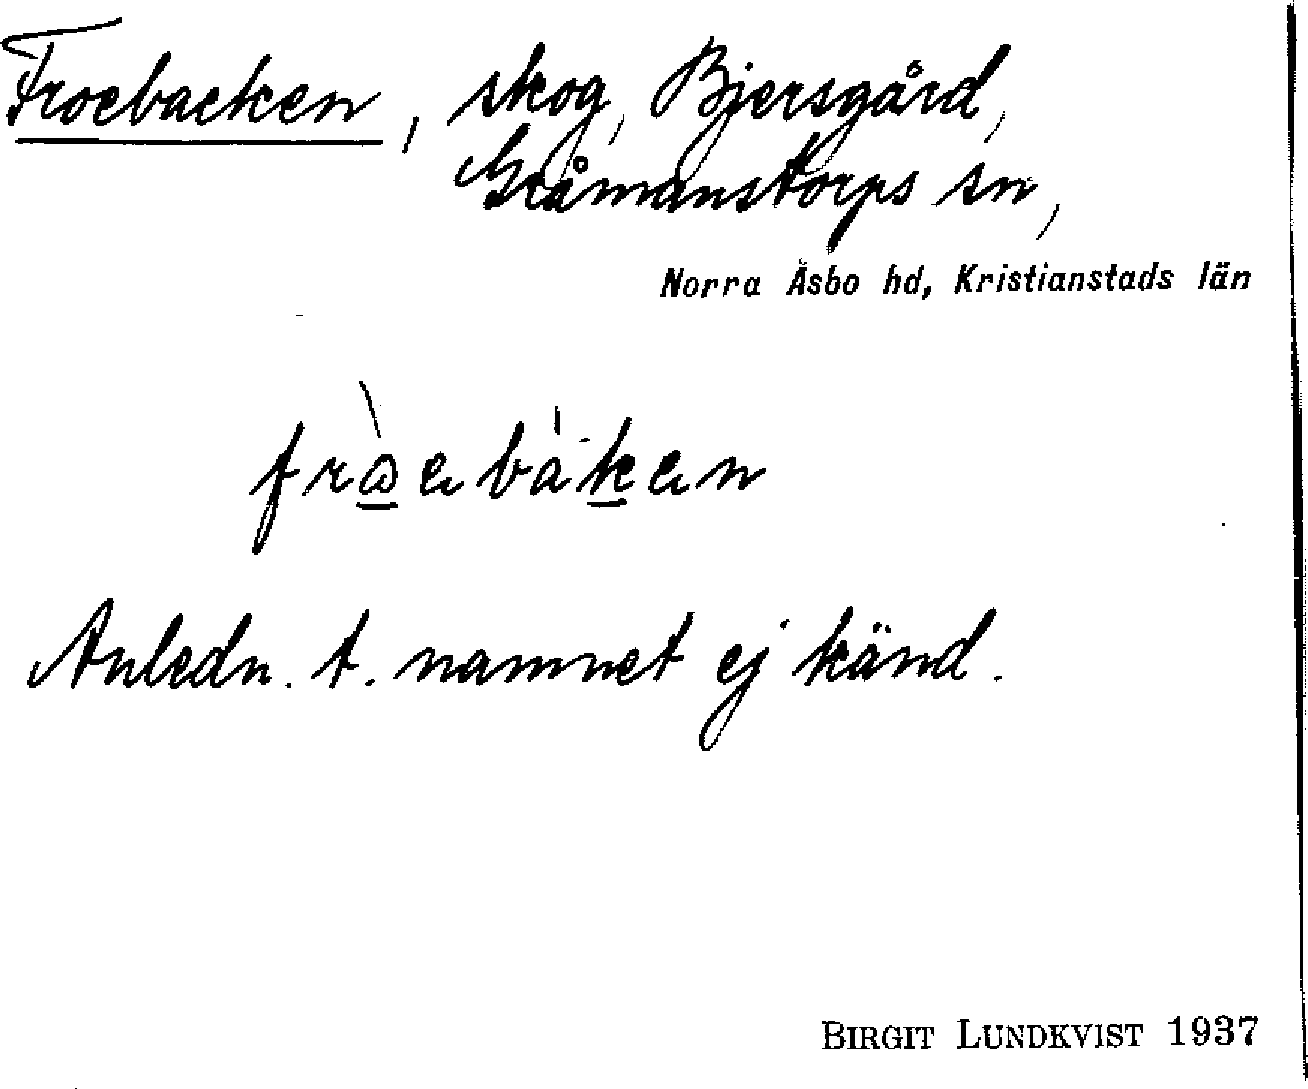 Froebacken, skog, Bjersgård,
Gråmanstorps sn,
Norra Åsbo hd, Kristianstads län
Anledn. t. namnet ej känd.
BIRGIT LUNDKVIST 1937